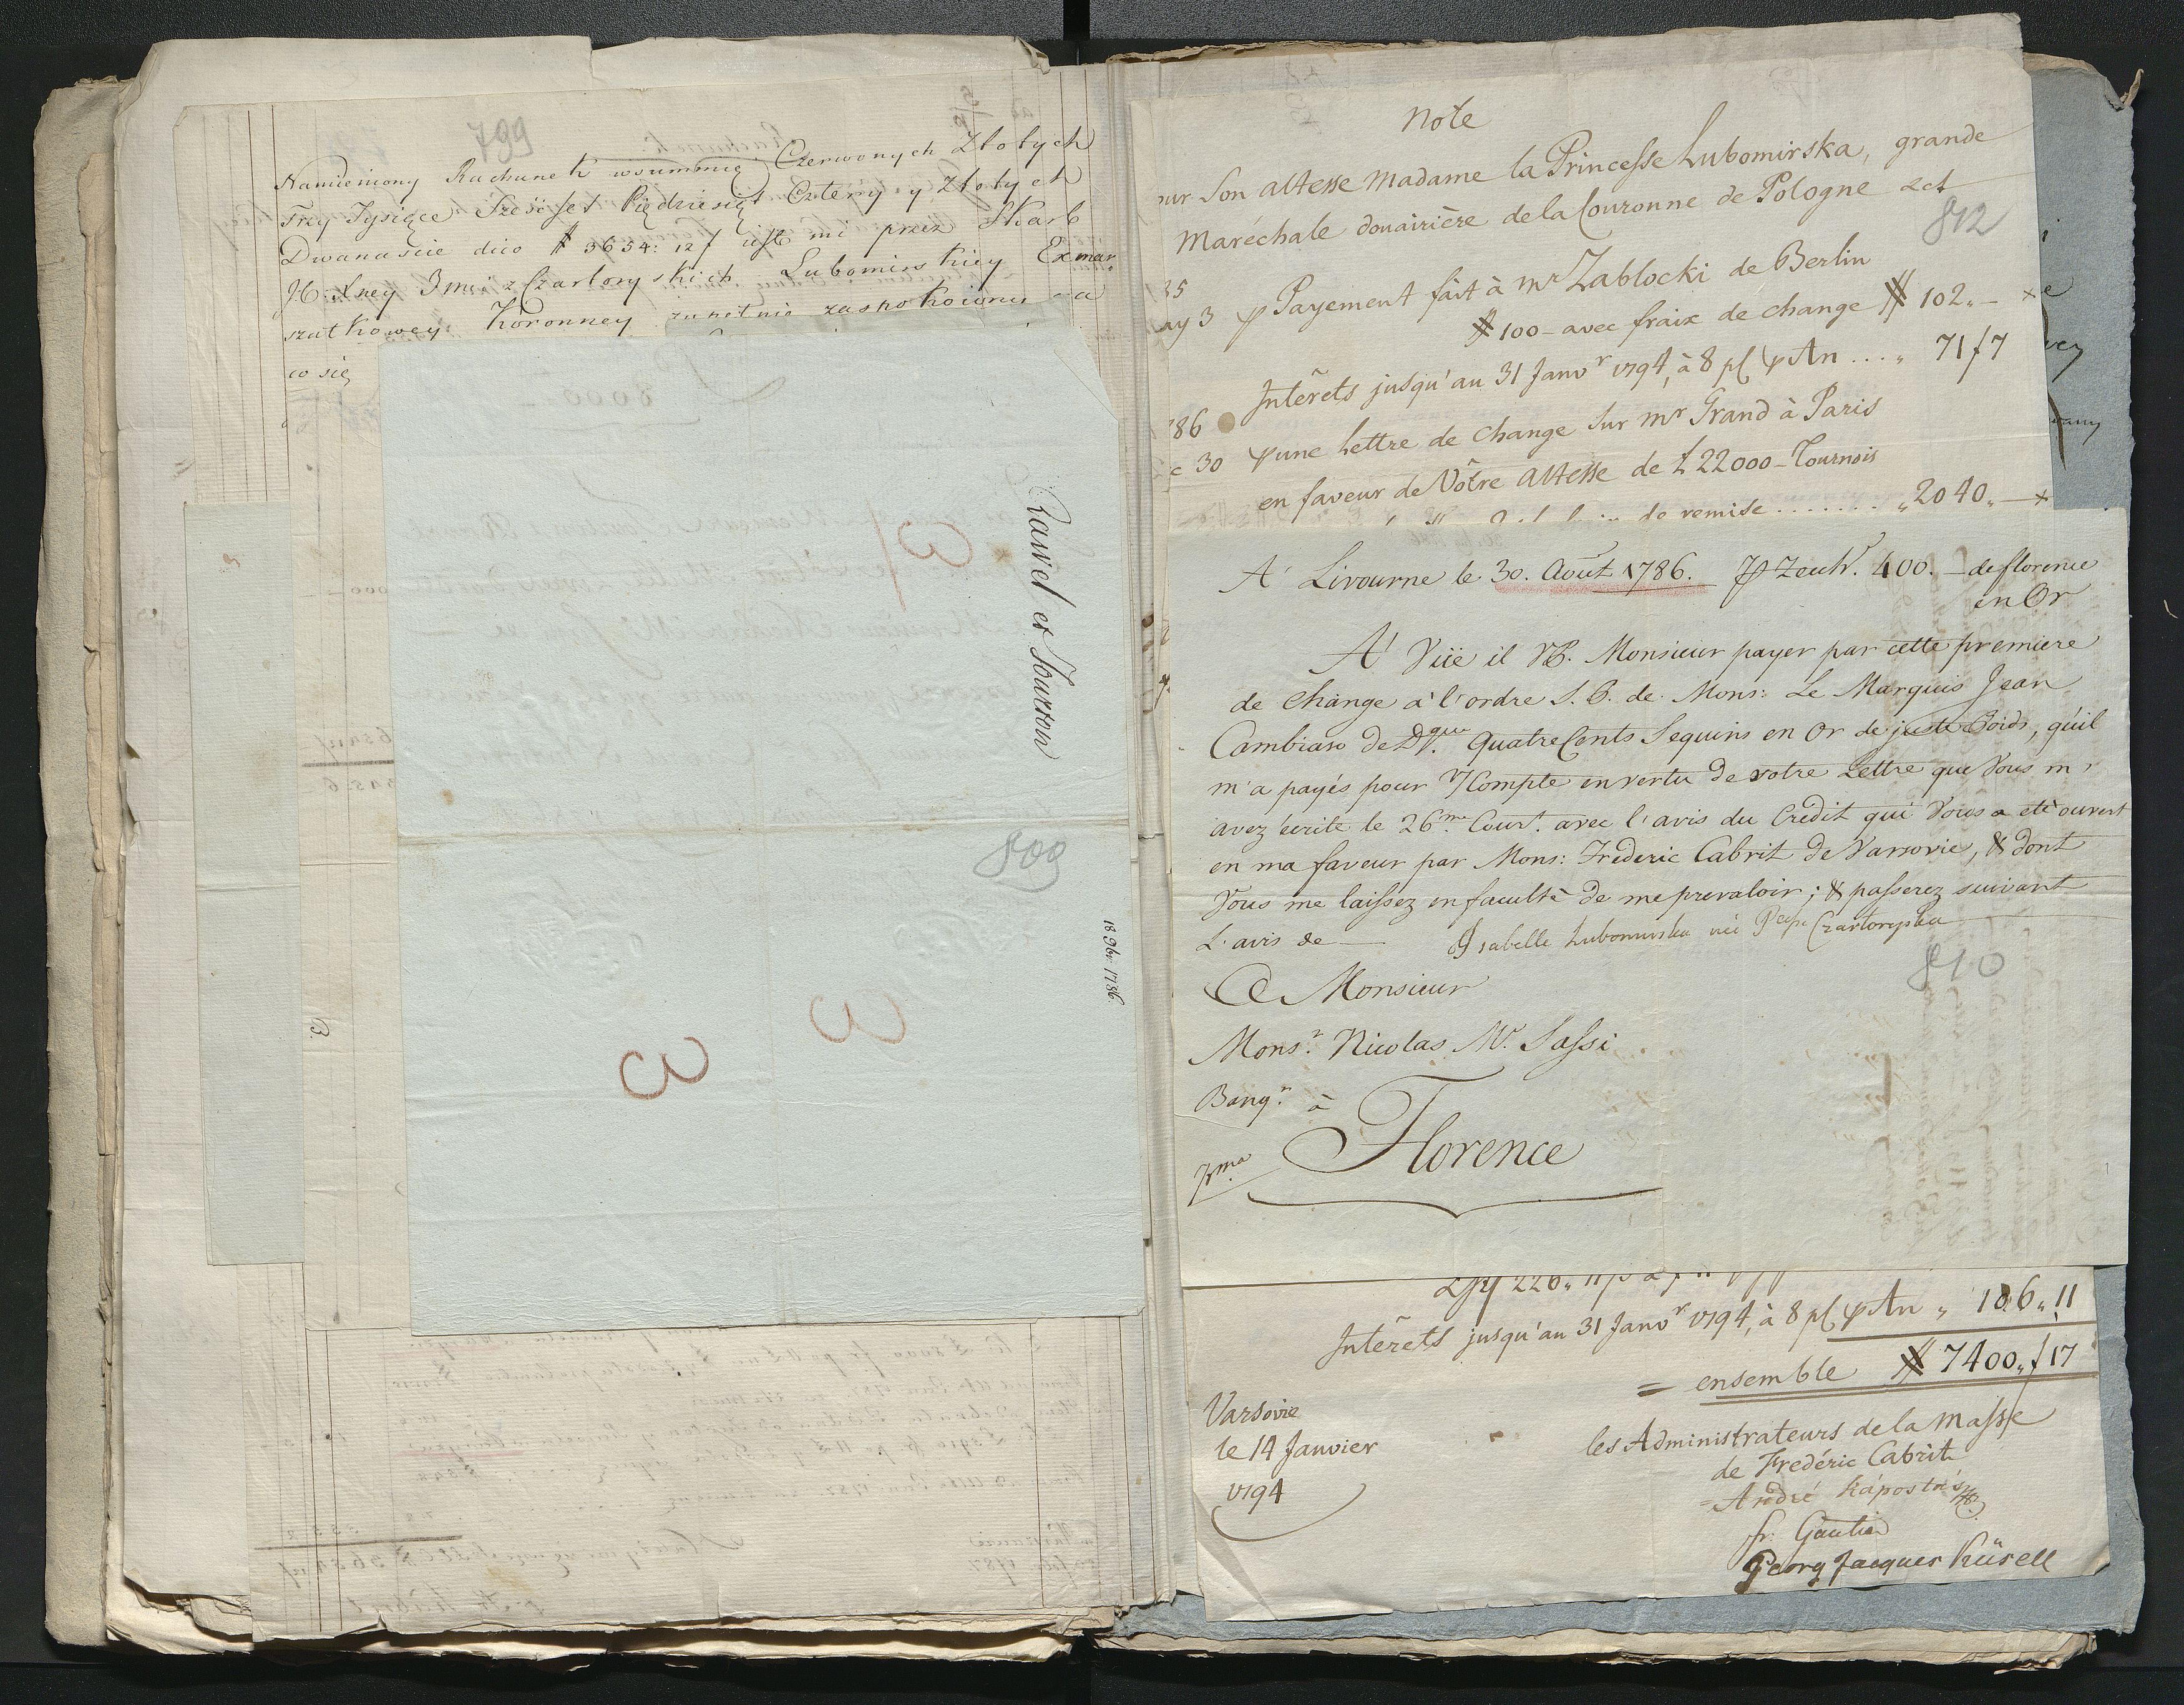 799
Namieniony Rachunek w summie Czerwonych Złotych
Trzy Tysiące Sześćset Pięćdziesiąt Cztery y Złotych
Dwanaście dico # 3654: 12 f iest mi przez Skarb
J.O. Xney Jmci z Czartoryskich Lubomirskiey Exmar
szałkowey Koronney zupełnie zaspokoiony na
co się
Rawel et Tourton
3
809
18 9br 1786.
3
3
3.
Note
our Son altesse Madame la Princesse Lubomirska, grande
Maréchale douairière de la Couronne de Pologne &ct
812
35
ay 3 p Payement fait à Mr Zablocki de Berlin
# 100 - avec fraix de change # 102„ —
Intêrets jusqu'au 31 Janvr 1794, à 8 p p An .... „ 71 f 7
786
c 30 p une Lettre de Change sur Mr Grand à Paris
en faveur de Vôtre Altesse de £ 22000 - Tournois
de remise ....... „ 2040„ —
A' Livourne le 30. Août 1786. P Zeuh. 400. — de florence
en Or
A' Vüe il VP. Monsieur payer par cette premiere
de Change a' l'ordre S. P. de Mons: Le Marquis Jean
Cambiaso de D.que Quatre Cents Sequins en Or de juste Poids, qu'il
m'a payés pour V/Compte en vertu de votre Lettre que Vous m'
avez écrite le 26.me Court. avec l'avis du Crédit qui Vous a eté ouvert
en ma faveur par Mons: Frederic Cabrit de Varsovie, & dont
Vous me laissez en faculté de me prevaloir; & passerez suivant
L'avis de — Isabelle Lubomirska née Pcsse Czartoryska
810
A Monsieur
Mons.r Nicolas M. Sassi
Banq.r à
Florence
Pma
Intêrets jusqu'au 31 Janvr 1794, à 8 p p An „ 186„ 11
= ensemble # 7400„ f 17
Varsovie
le 14 Janvier
1794
les Administrateurs de la Masse
de Fredéric Cabrit
André Kápostás
fr. Gautier
Georg Jacques Küsell